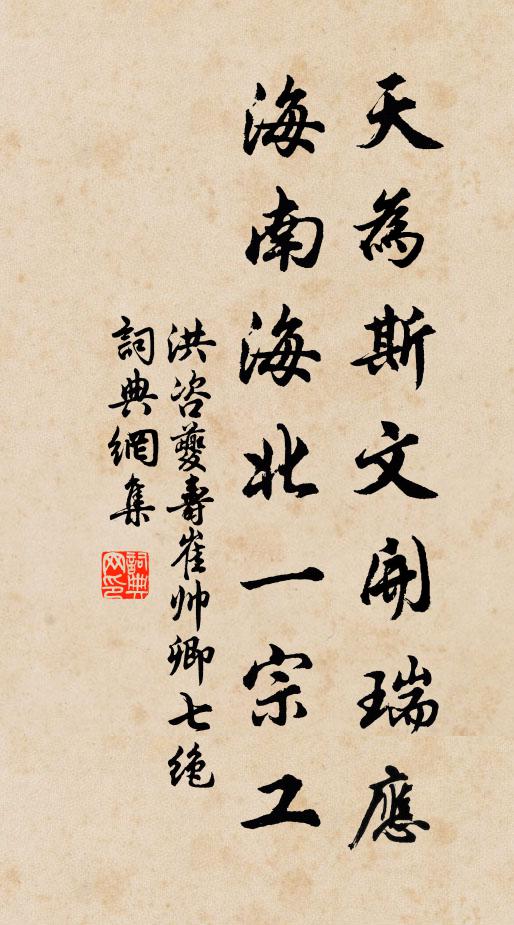 天為斯文開瑞應
海南海北一宗工
洪咨夔壽崔帥卿七绝
詞典網集
詞典网印